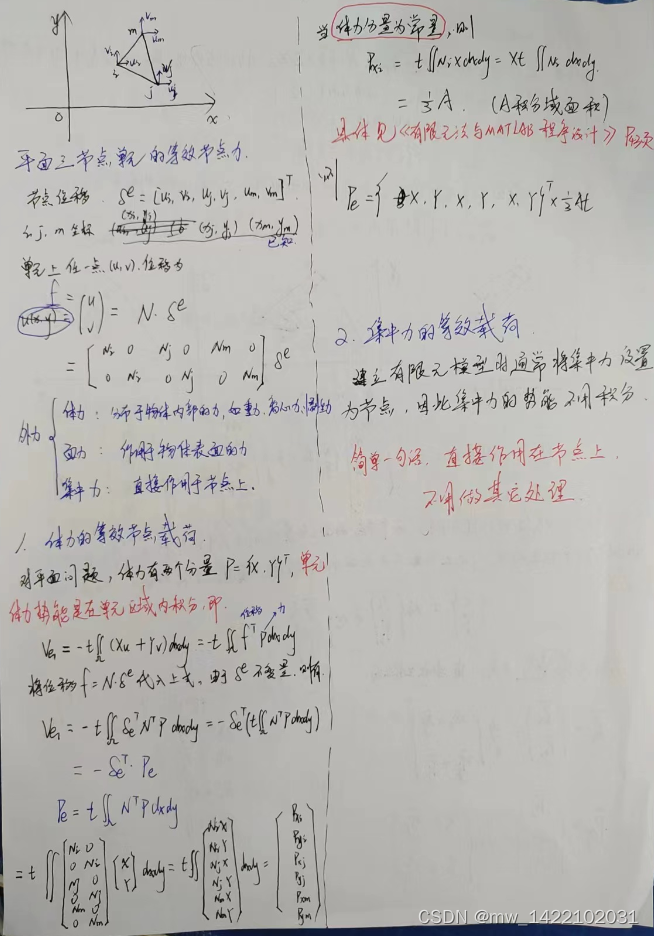 y
vm
m
um
vi
ui
i
vj
j
uj
O
x
平面三节点单元的等效节点力.
节点位移. δᵉ = [ui, vi, uj, vj, um, vm]ᵀ
i, j, m 坐标 (xi, yi) (xj, yj) (xm, ym)
已知
单元上任一点(u,v).位移为
f = (u v) = N·δᵉ
= [Ni 0 Nj 0 Nm 0
0 Ni 0 Nj 0 Nm] δᵉ
外力
体力: 分布于物体内部的力,如重力.离心力
面力: 作用于物体表面的力
集中力: 直接作用于节点上.
1. 体力的等效节点载荷.
对平面问题, 体力有两个分量 P={X.Y}ᵀ, 单元
体力势能是在单元区域内积分,即.
位移 力
Ve₁ = -t∬(Xu + Yv)dxdy = -t∬ fᵀ P dxdy
将位移 f = N·δᵉ 代入上式, 由于 δᵉ 不变量.
Ve₁ = -t∬ δeᵀ Nᵀ P dxdy = -δeᵀ(t∬ NᵀP dxdy)
= -δeᵀ· Pe
Pe = t∬ NᵀP dxdy
= t∬ [Ni 0
0 Ni
Nj 0
0 Nj
Nm 0
0 Nm] {X Y} dxdy = t∬ {NiX NiY NjX NjY NmX NmY} dxdy = {Pxi Pyi Pxj Pyj Pxm Pym}
当体力分量为常量,则
Pxi = t∬NiXdxdy = Xt∬Ni dxdy.
= ⅓A. (A积分域面积)
具体见《有限元法与MATLAB程序设计》
则
Pe = { X, Y, X, Y, X, Y}ᵀ × ⅓At
2. 集中力的等效载荷.
建立有限元模型时通常将集中力设置
为节点, 因此集中力的势能不用积分.
简单一句话, 直接作用在节点上.
不用做其它处理.
CSDN @mw_1422102031